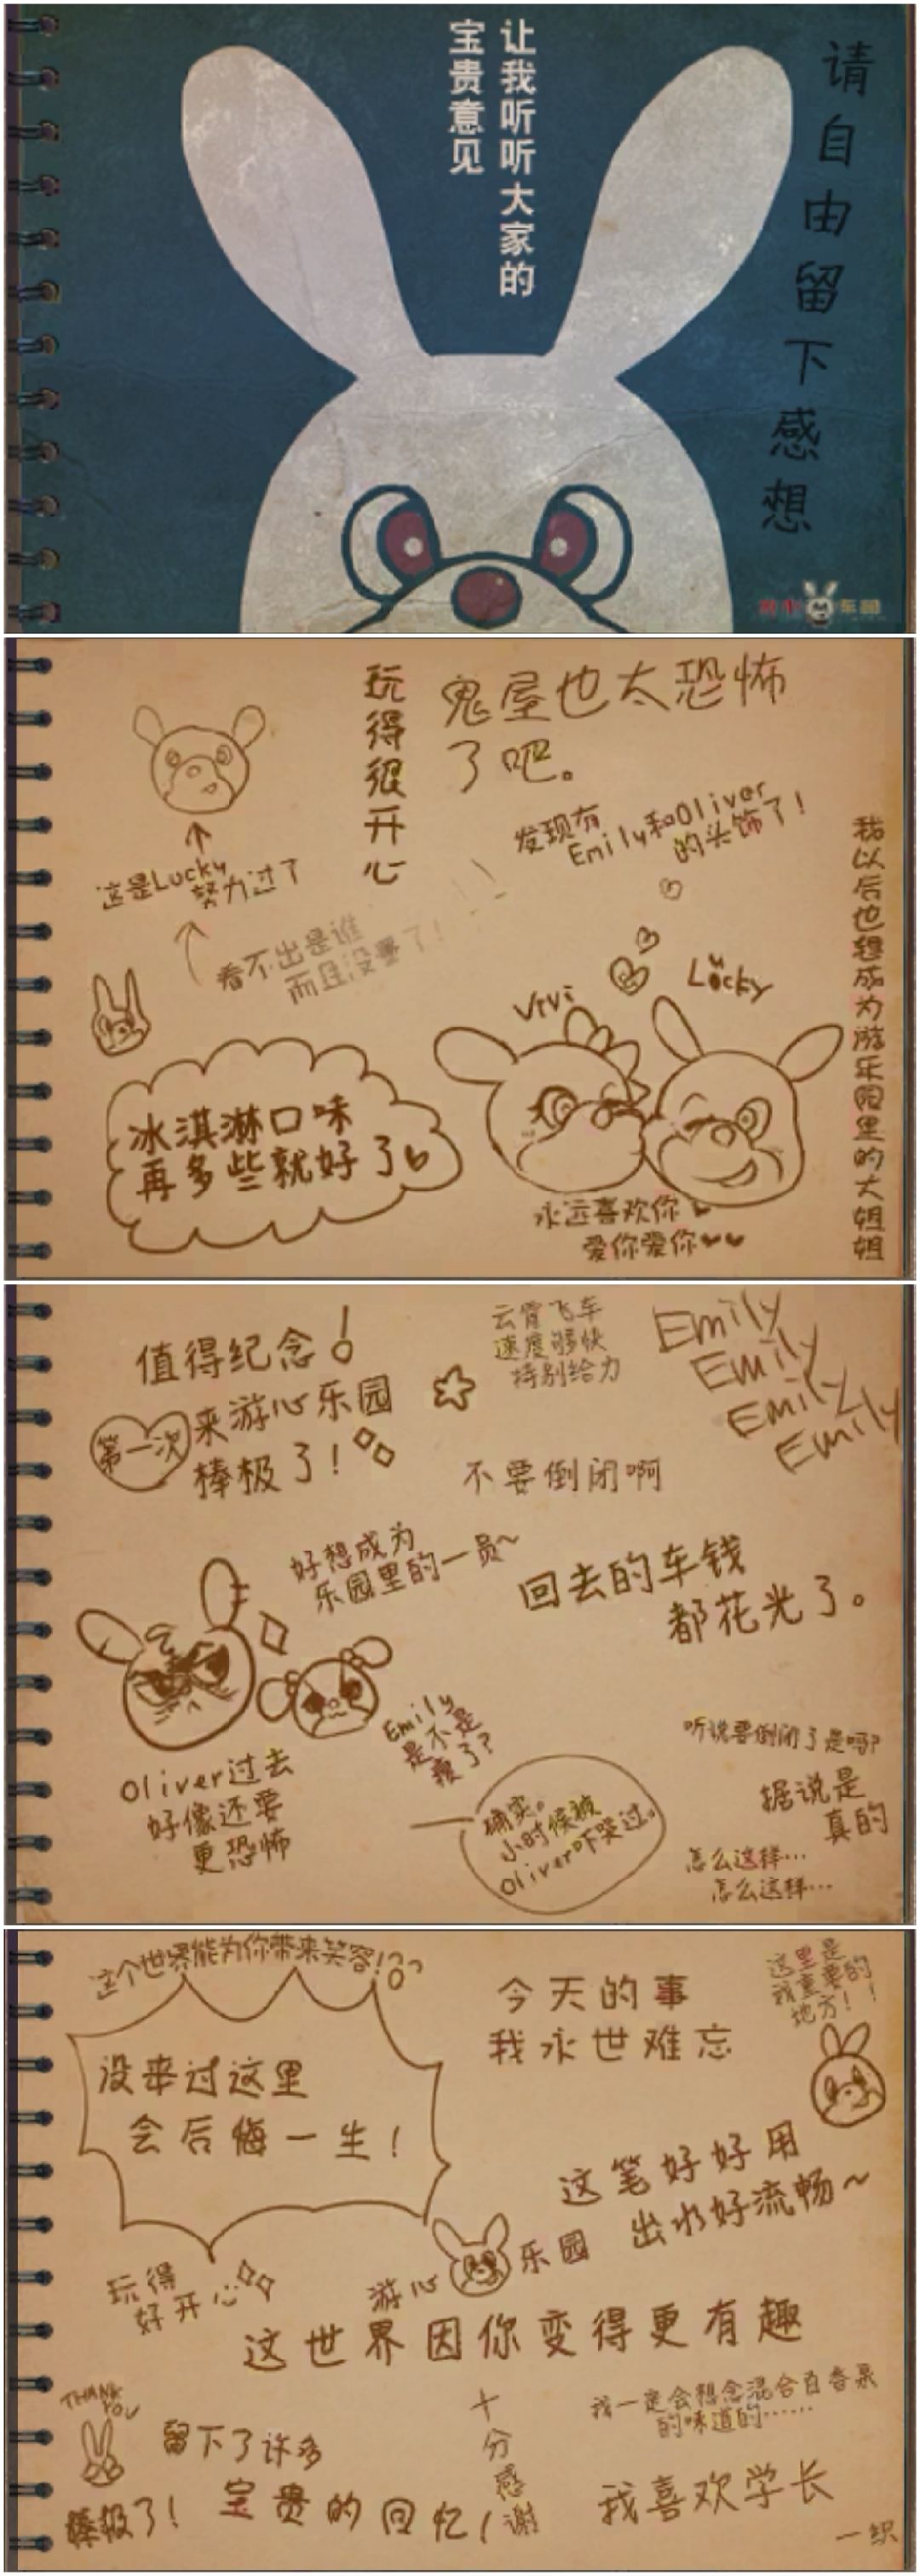 让我听听大家的
宝贵意见
请自由留下感想
玩得很开心
鬼屋也太恐怖
了吧。
发现有
Emily和Oliver
的头饰了！
这是Lucky
努力过了
看不出是谁
而且没
了！
我以后也想成为游乐园里的大姐姐
ViVi
Lucky
冰淇淋口味
再多些就好了
永远喜欢你
爱你爱你
值得纪念！
第一次
来游心乐园
棒极了！
云霄飞车
速度够快
特别给力
Emily
Emily
Emily
Emily
不要倒闭啊
好想成为
乐园里的一员~
回去的车钱
都花光了。
Oliver过去
好像还要
更恐怖
Emily
是不是
瘦了？
确实。
小时候被
Oliver吓哭过。
听说要倒闭了是吗？
据说是
真的
怎么这样…
怎么这样…
这个世界能为你带来笑容！??
没来过这里
会后悔一生！
今天的事
我永世难忘
这里是
我重要的
地方！！
这笔好好用
出水好流畅~
玩得
好开心
游心
乐园
这世界因你变得更有趣
THANK
YOU
留下了许多
宝贵的回忆！
棒极了！
十分感谢
我一定会想念混合百香果
的味道的……
我喜欢学长
一织